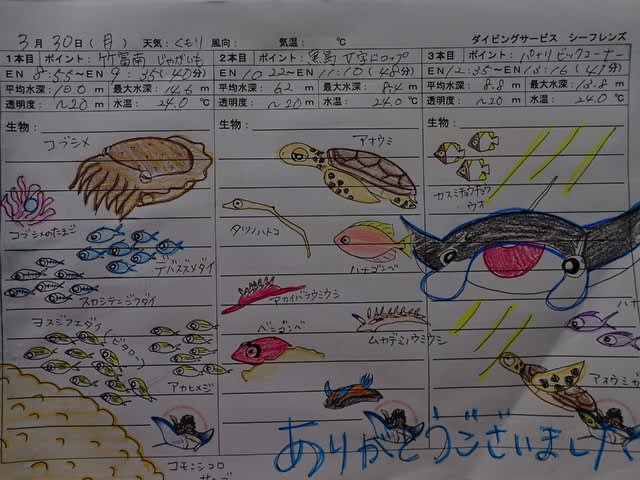 3月 30日(月) 天気：くもり 風向： 気温： ℃ ダイビングサービス シーフレンズ
1本目 ポイント：竹富南 じゃがいも
EN 8:55～EN 9:35(40分)
平均水深：10.0 m 最大水深：14.6 m
透明度：～20 m 水温：24.0 ℃
生物：
コブシメ
コブシメのたまご
デバスズメダイ
スカシテンジクダイ
ヨスジフエダイ
アカヒメジ
コモンシコロ
サンゴ
2本目 ポイント：黒島 V字ドロップ
EN 10:22～EN 11:10(48分)
平均水深：6.2 m 最大水深：8.4 m
透明度：～20 m 水温：24.0 ℃
生物：
アオウミ
タツノハトコ
ハナゴンベ
ムカデミノウミウシ
ベニゴンベ
3本目 ポイント：パナリ ビッグコーナー
EN 12:35～EN 13:16(41分)
平均水深：8.8 m 最大水深：13.8 m
透明度：～20 m 水温：24.0 ℃
生物：
カスミチョウチョウ
ウオ
ハナ
アオウミ
ありがとうございました